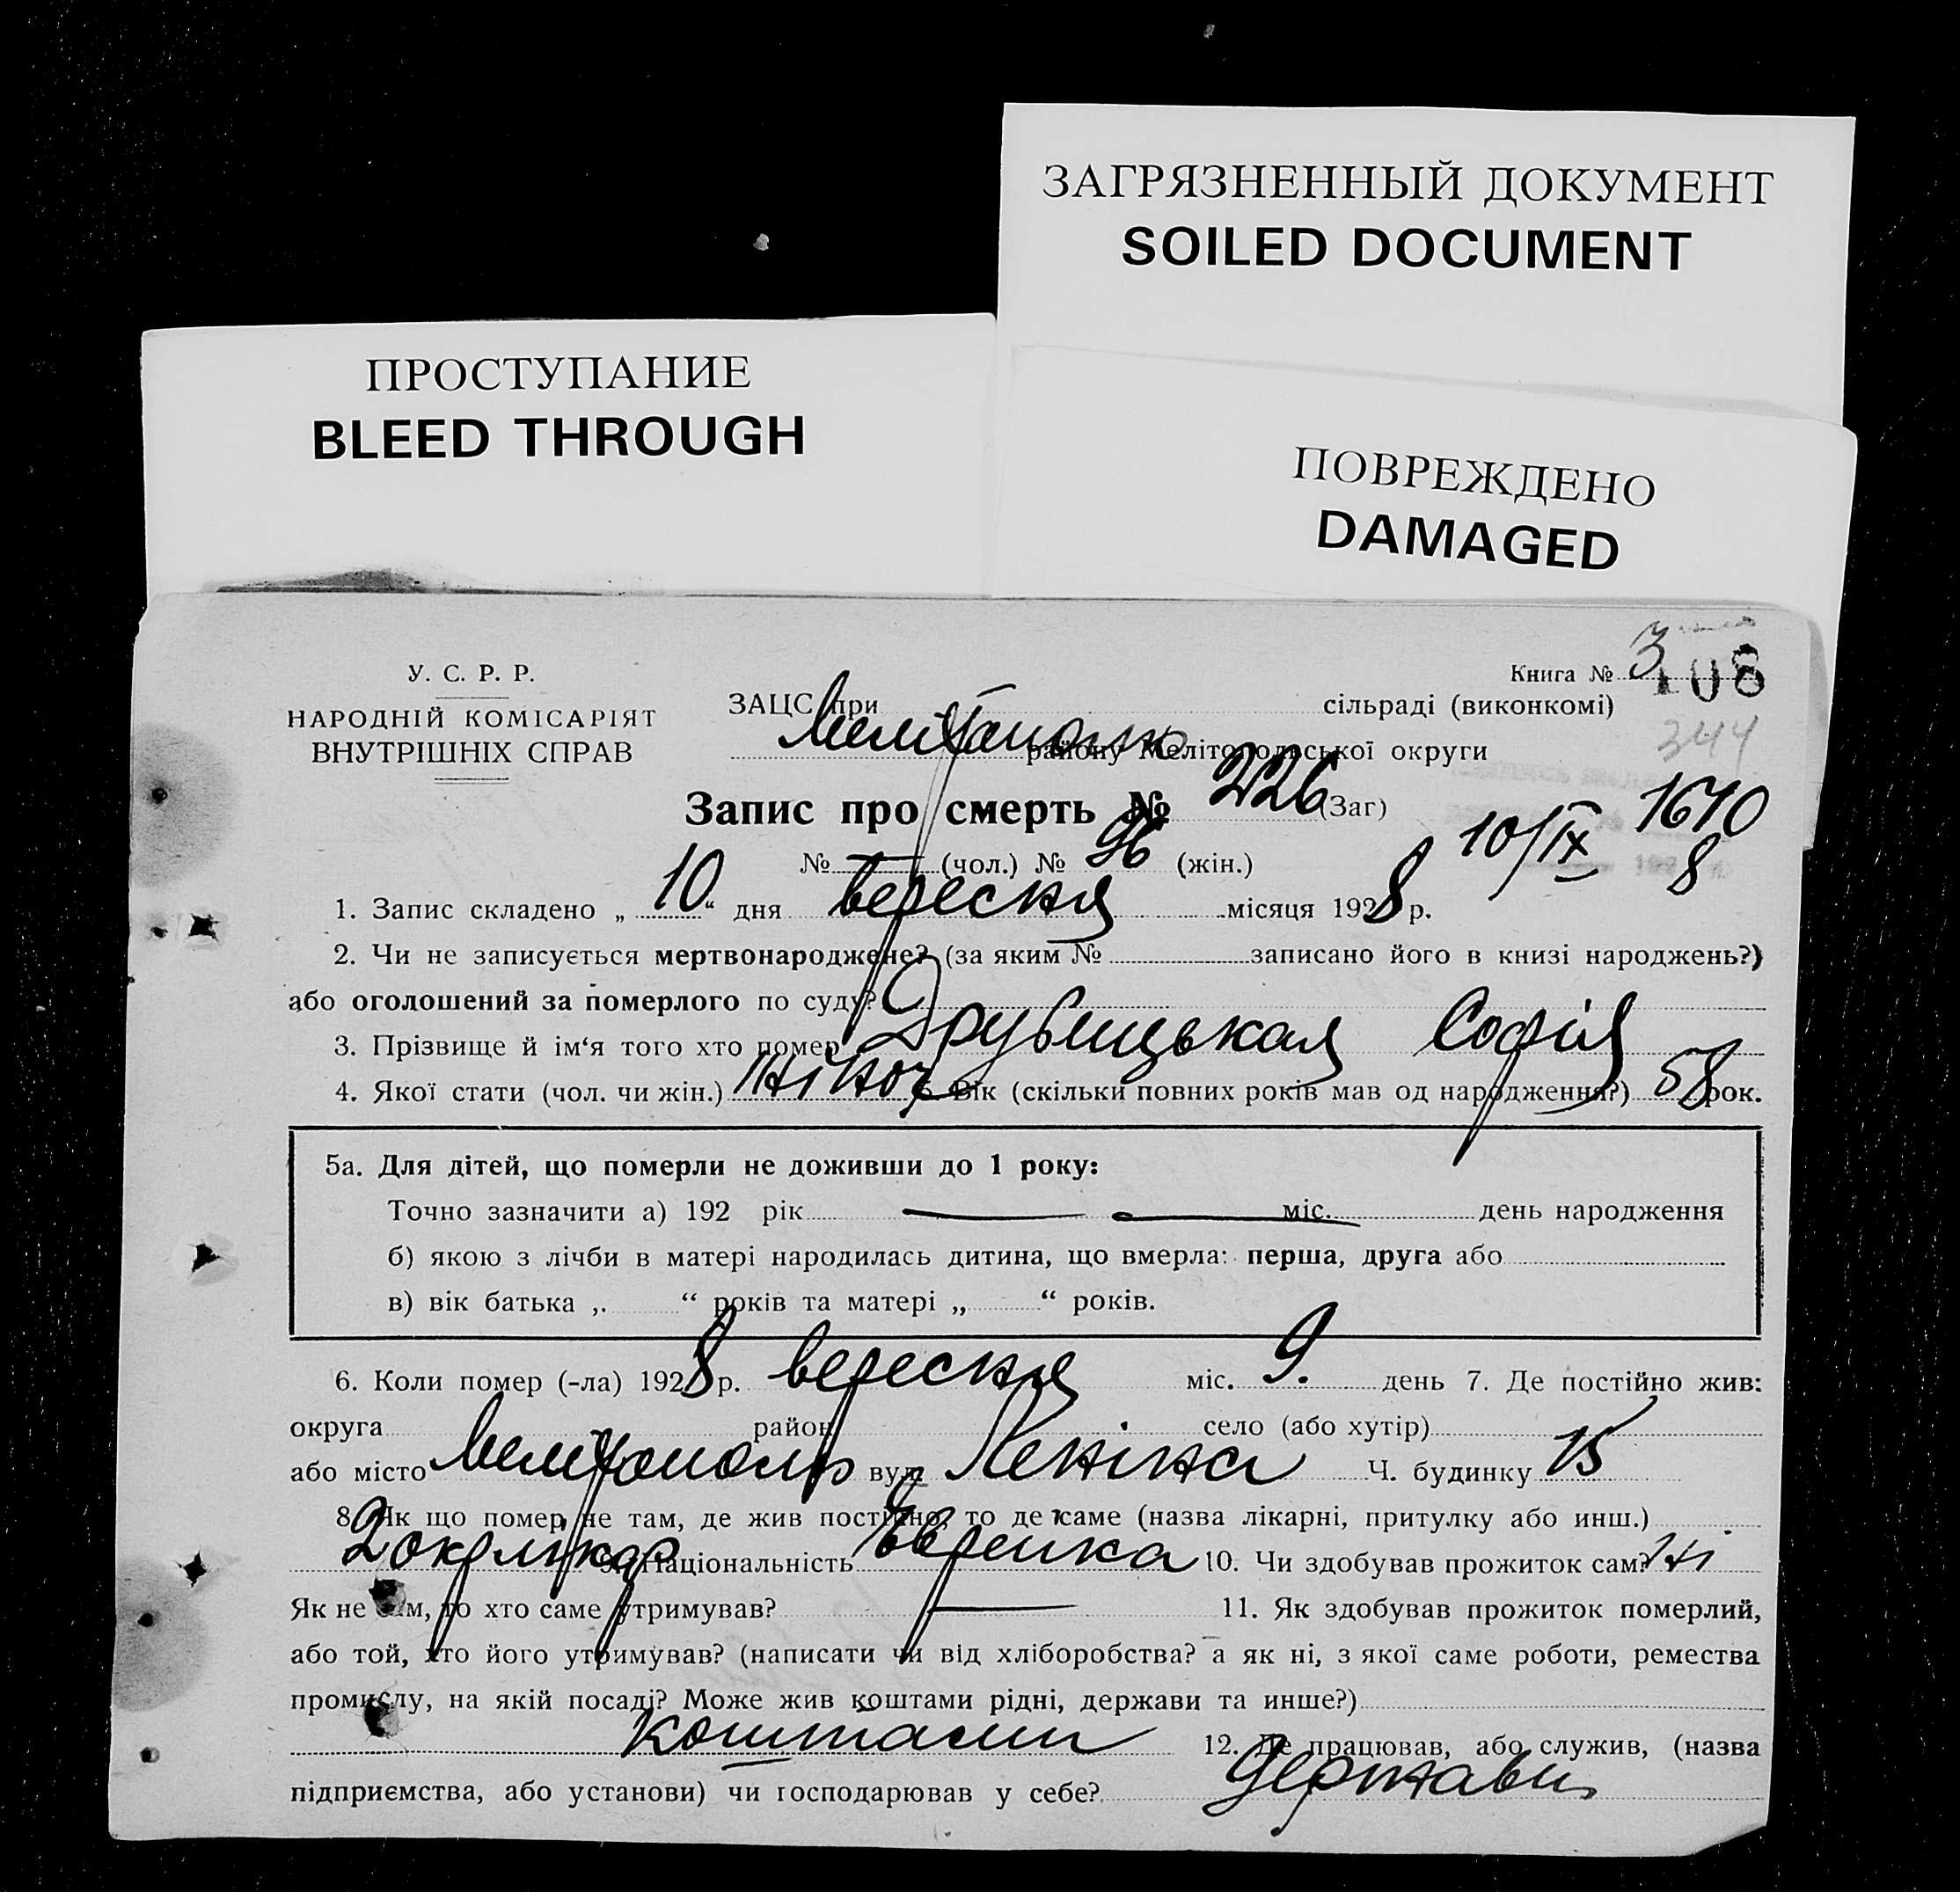 ЗАГРЯЗНЕННЫЙ ДОКУМЕНТ
SOILED DOCUMENT
ПРОСТУПАНИЕ
BLEED THROUGH
ПОВРЕЖДЕНО
DAMAGED
У. С. Р. Р.
НАРОДНІЙ КОМІСАРІЯТ
ВНУТРІШНІХ СПРАВ
Книга № 3
108
344
ЗАЦС при сільраді (виконкомі)
району Мелітопольської округи
Запис про смерть № 226 (Заг)
10/IX 1610
8
№ — (чол.) № 96 (жін.)
1. Запис складено „ 10 “ дня вересня місяця 1928 р.
2. Чи не записується мертвонароджене? (за яким № записано його в книзі народжень?)
або оголошений за померлого по суду?
3. Прізвище й ім‘я того хто помер Друбицькая Софія
4. Якої стати (чол. чи жін.) жіноч 5. Вік (скільки повних років мав од народження?) 58 рок.
5а. Для дітей, що померли не доживши до 1 року:
Точно зазначити а) 192 рік — — міс. день народження
б) якою з лічби в матері народилась дитина, що вмерла: перша, друга або
в) вік батька „ “ років та матері „ “ років.
6. Коли помер (-ла) 1928 р. вересня міс. 9. день 7. Де постійно жив:
округа район село (або хутір)
або місто Мелітополь вул. Леніна Ч. будинку 15
8. Як що помер не там, де жив постійно, то де саме (назва лікарні, притулку або инш.)
2 окрлікар 9. Національність Еврейка 10. Чи здобував прожиток сам? Ні
Як не сам, то хто саме утримував? — 11. Як здобував прожиток померлий,
або той, хто його утримував? (написати чи від хліборобства? а як ні, з якої саме роботи, ремества
промислу, на якій посаді? Може жив коштами рідні, держави та инше?)
коштами 12. Де працював, або служив, (назва
підприємства, або установи) чи господарював у себе? Держави